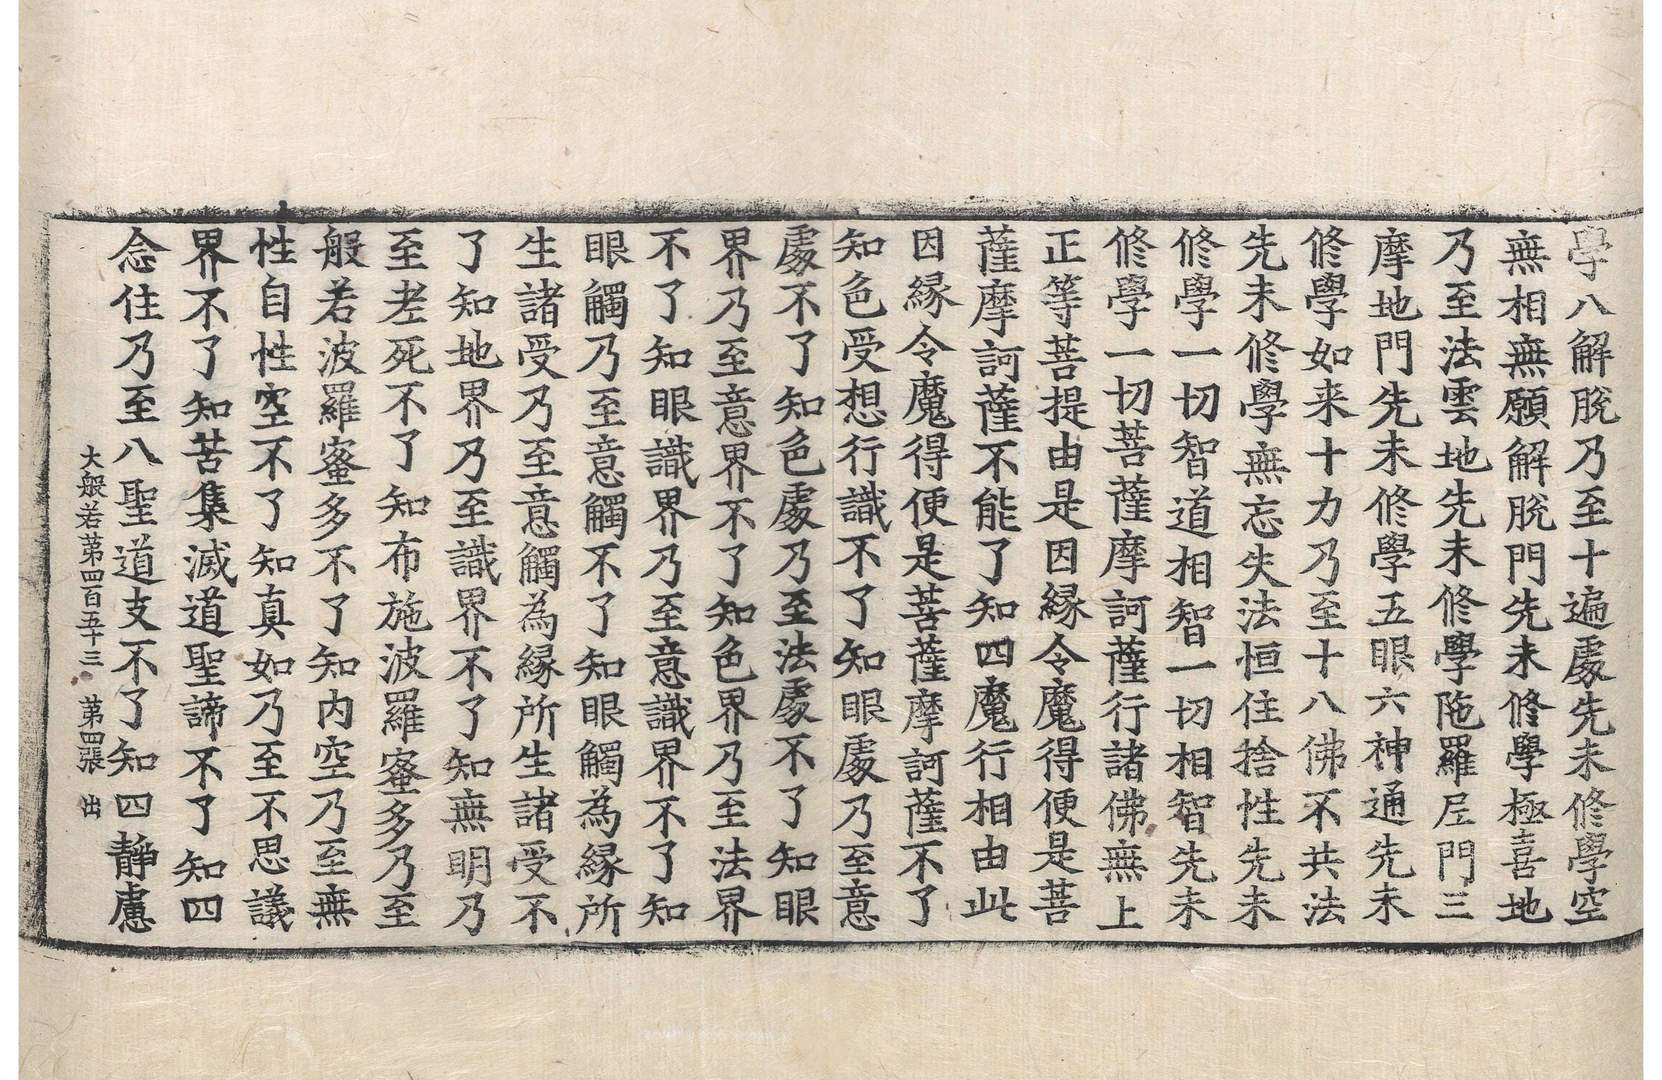 學八解脫乃至十遍處先未修學空
無相無願解脫門先未修學極喜地
乃至法雲地先未修學陁羅尼門三
摩地門先未修學五眼六神通先未
修學如来十力乃至十八佛不共法
先未修學無忘失法恒住捨性先未
修學一切智道相智一切相智先未
修學一切菩薩摩訶薩行諸佛無上
正等菩提由是因緣令魔得便是菩
薩摩訶薩不能了知四魔行相由此
因緣令魔得便是菩薩摩訶薩不了
知色受想行識不了知眼處乃至意
處不了知色處乃至法處不了知眼
界乃至意界不了知色界乃至法界
不了知眼識界乃至意識界不了知
眼觸乃至意觸不了知眼觸為緣所
生諸受乃至意觸為緣所生諸受不
了知地界乃至識界不了知無明乃
至老死不了知布施波羅蜜多乃至
般若波羅蜜多不了知內空乃至無
性自性空不了知真如乃至不思議
界不了知苦集滅道聖諦不了知四
念住乃至八聖道支不了知四靜慮
大般若第四百五十三 第四張 出